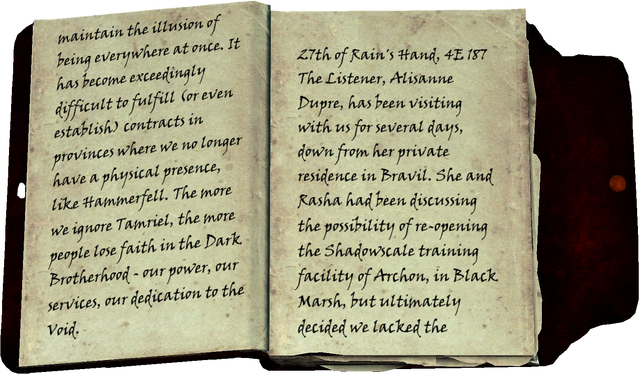 maintain the illusion of
being everywhere at once. It
has become exceedingly
difficult to fulfill (or even
establish) contracts in
provinces where we no longer
have a physical presence,
like Hammerfell. The more
we ignore Tamriel, the more
people lose faith in the Dark
Brotherhood - our power, our
services, our dedication to the
Void.
27th of Rain's Hand, 4E 187
The Listener, Alisanne
Dupre, has been visiting
with us for several days,
down from her private
residence in Bravil. She and
Rasha had been discussing
the possibility of re-opening
the Shadowscale training
facility of Archon, in Black
Marsh, but ultimately
decided we lacked the